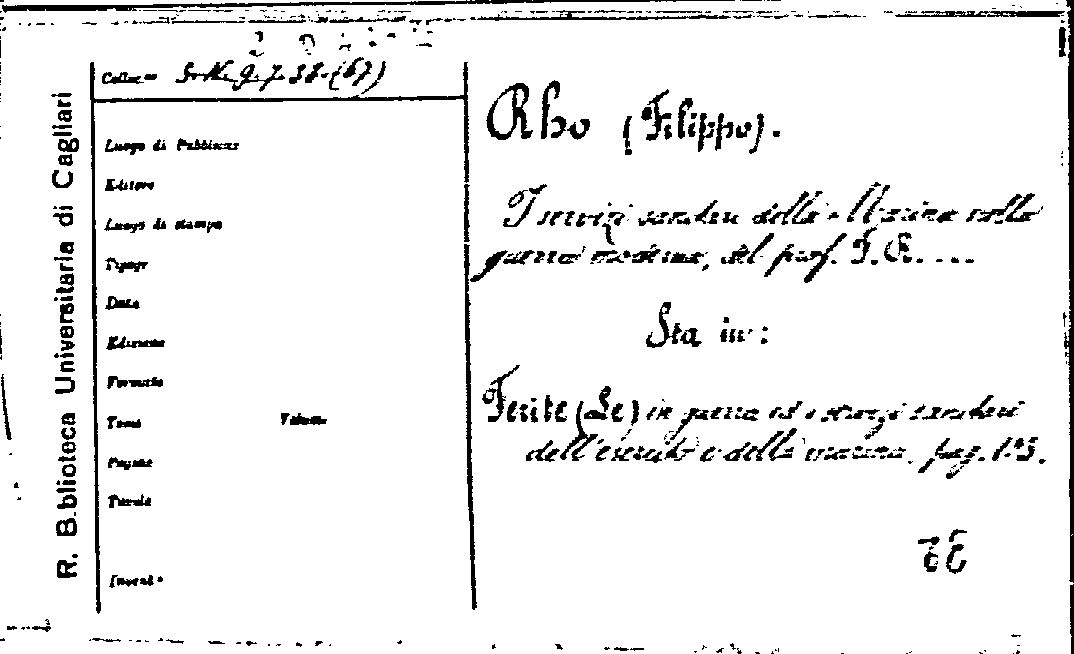 R. Biblioteca Universitaria di Cagliari
Colloc.ne S. N. 9. 7. 38. (67)
Luogo di Pubblicaz
Editore
Luogo di stampa
Tipogr
Data
Edizione
Formato
Tomi Volume
Pagine
Tavole
Invent.e
Rho (Filippo).
I servizi sanitari della Marina nella
guerra moderna, del prof. F. R. ....
Sta in:
Ferite (Le) in guerra ed i servizi sanitari
dell'esercito e della marina. pag.